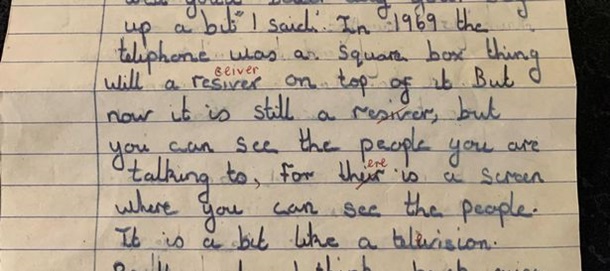 up a bit" I said. In 1969 the
teliphone was a square box thing
will a resiver ceiver on top of it. But
now it is still a resiver, but
you can see the people you are
talking to, for their ere is a screen
where you can see the people.
It is a bit like a television.